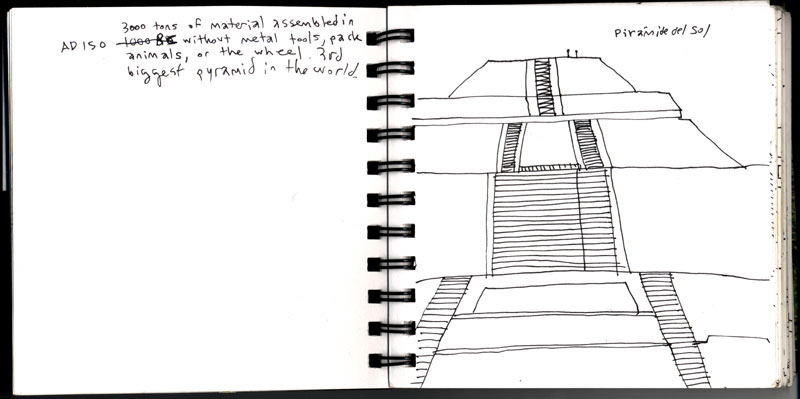 3000 tons of material assembled in
AD 150 1000 BC without metal tools, pack
animals, or the wheel. 3rd
biggest pyramid in the world
Pirámide del Sol